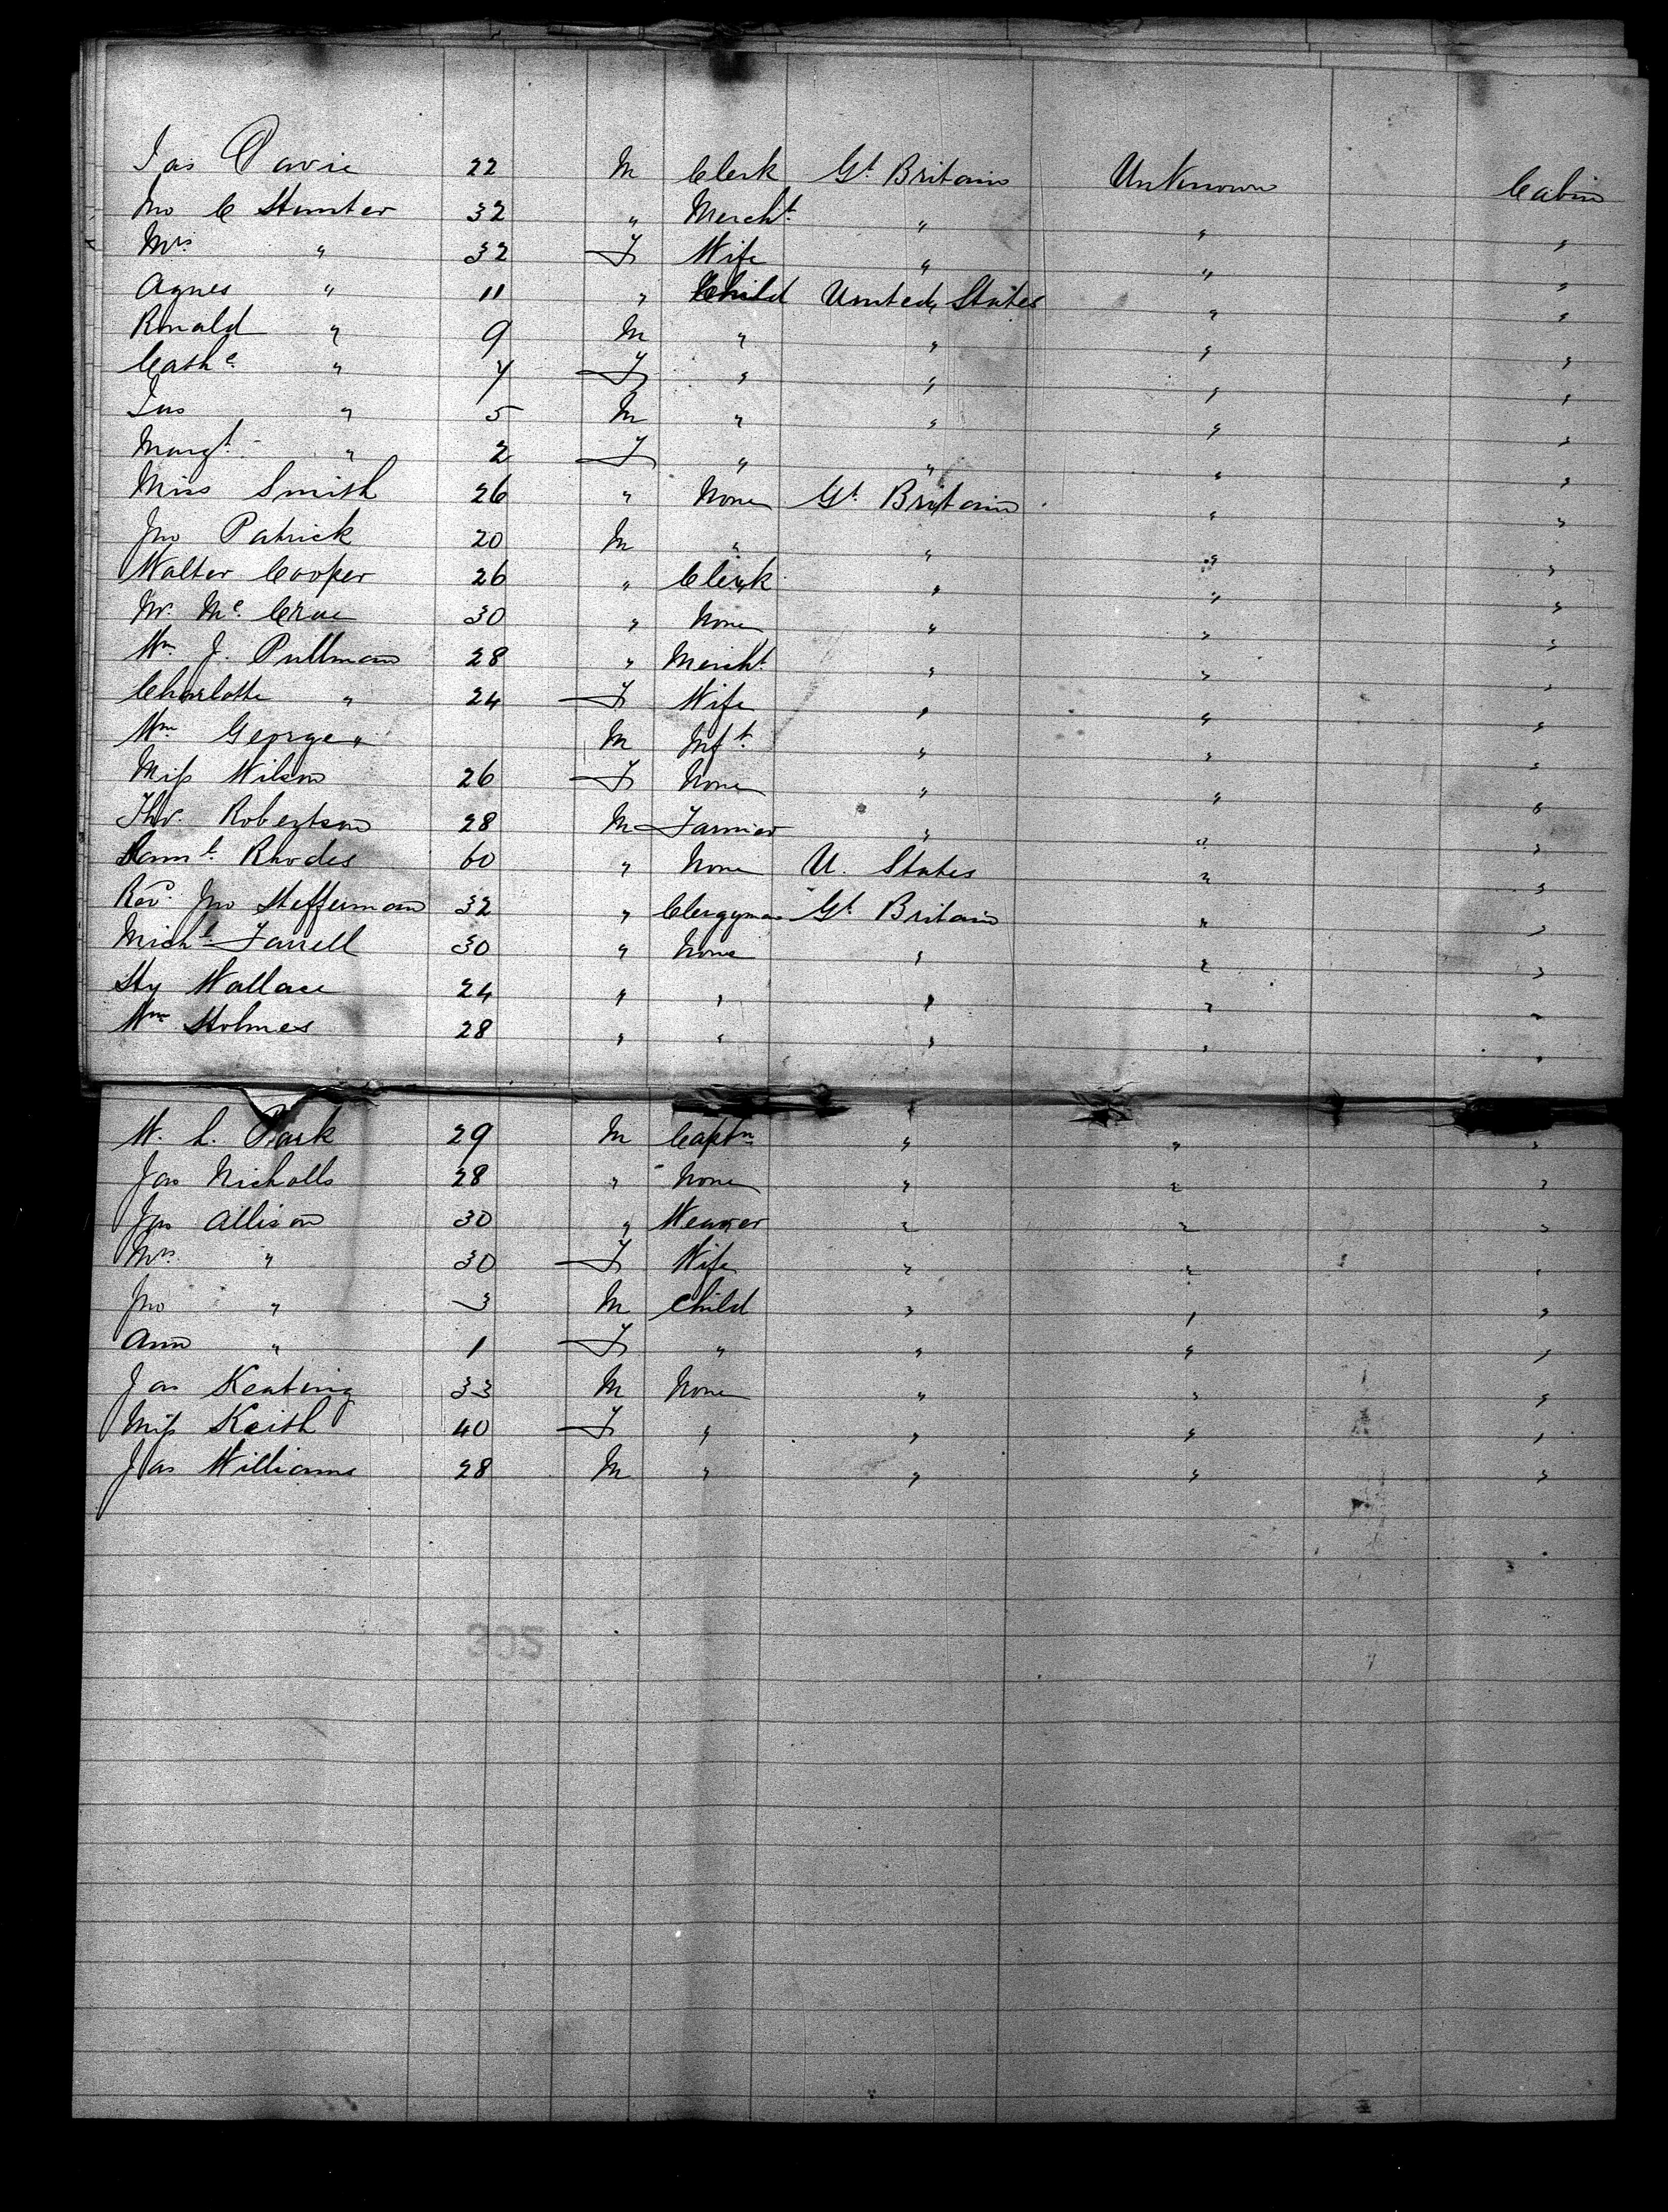 Jas Davie 22 M Clerk Gt. Britain Unknown Cabin
Jno C Hunter 32 " Mercht. " " "
Mrs " 32 F Wife " " "
Agnes " 11 " Child United States " "
Ronald " 9 M " " " "
Cathe. " 7 F " " " "
Jas " 5 M " " " "
Margt. " 2 F " " " "
Miss Smith 26 " None Gt. Britain " "
Jno Patrick 20 M " " " "
Walter Cooper 26 " Clerk " " "
W. Mc. Crae 30 " None " " "
Wm. J. Pullman 28 " Mercht. " " "
Charlotte " 24 F Wife " " "
Wm George " M Inft. " " "
Miss Wilson 26 F None " " "
Thos. Robertson 28 M Farmer " " "
Saml. Rhodes 60 " None U. States " "
Revd. Jno Heffernan 32 " Clergyman Gt. Britain " "
Michl. Farrell 30 " None " " "
Hy Wallace 24 " " " " "
Wm Holmes 28 " " " " "
W. L. Park 29 M Captn " " "
Jas Nicholls 28 " None " " "
Jas Allison 30 " Weaver " " "
Mrs. " 30 F Wife " " "
Jno " 3 M Child " " "
Ann " 1 F " " " "
Jas Keating 33 M None " " "
Miss Keith 40 F " " " "
Jas Williams 28 M " " " "
395